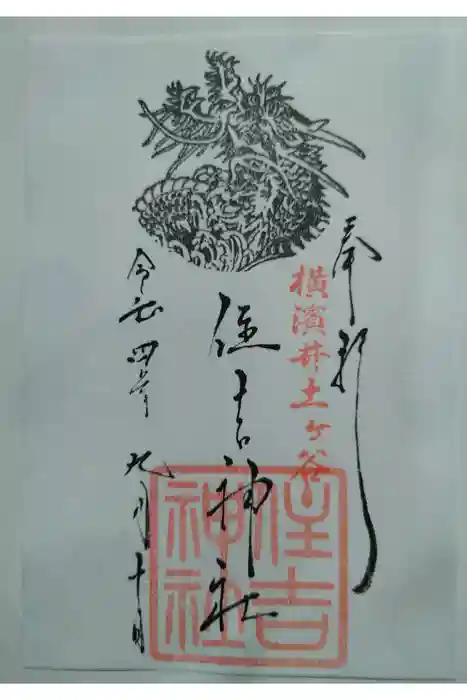 奉拝
横濱井土ヶ谷
住吉神社
住吉
神社
令和四年九月十日